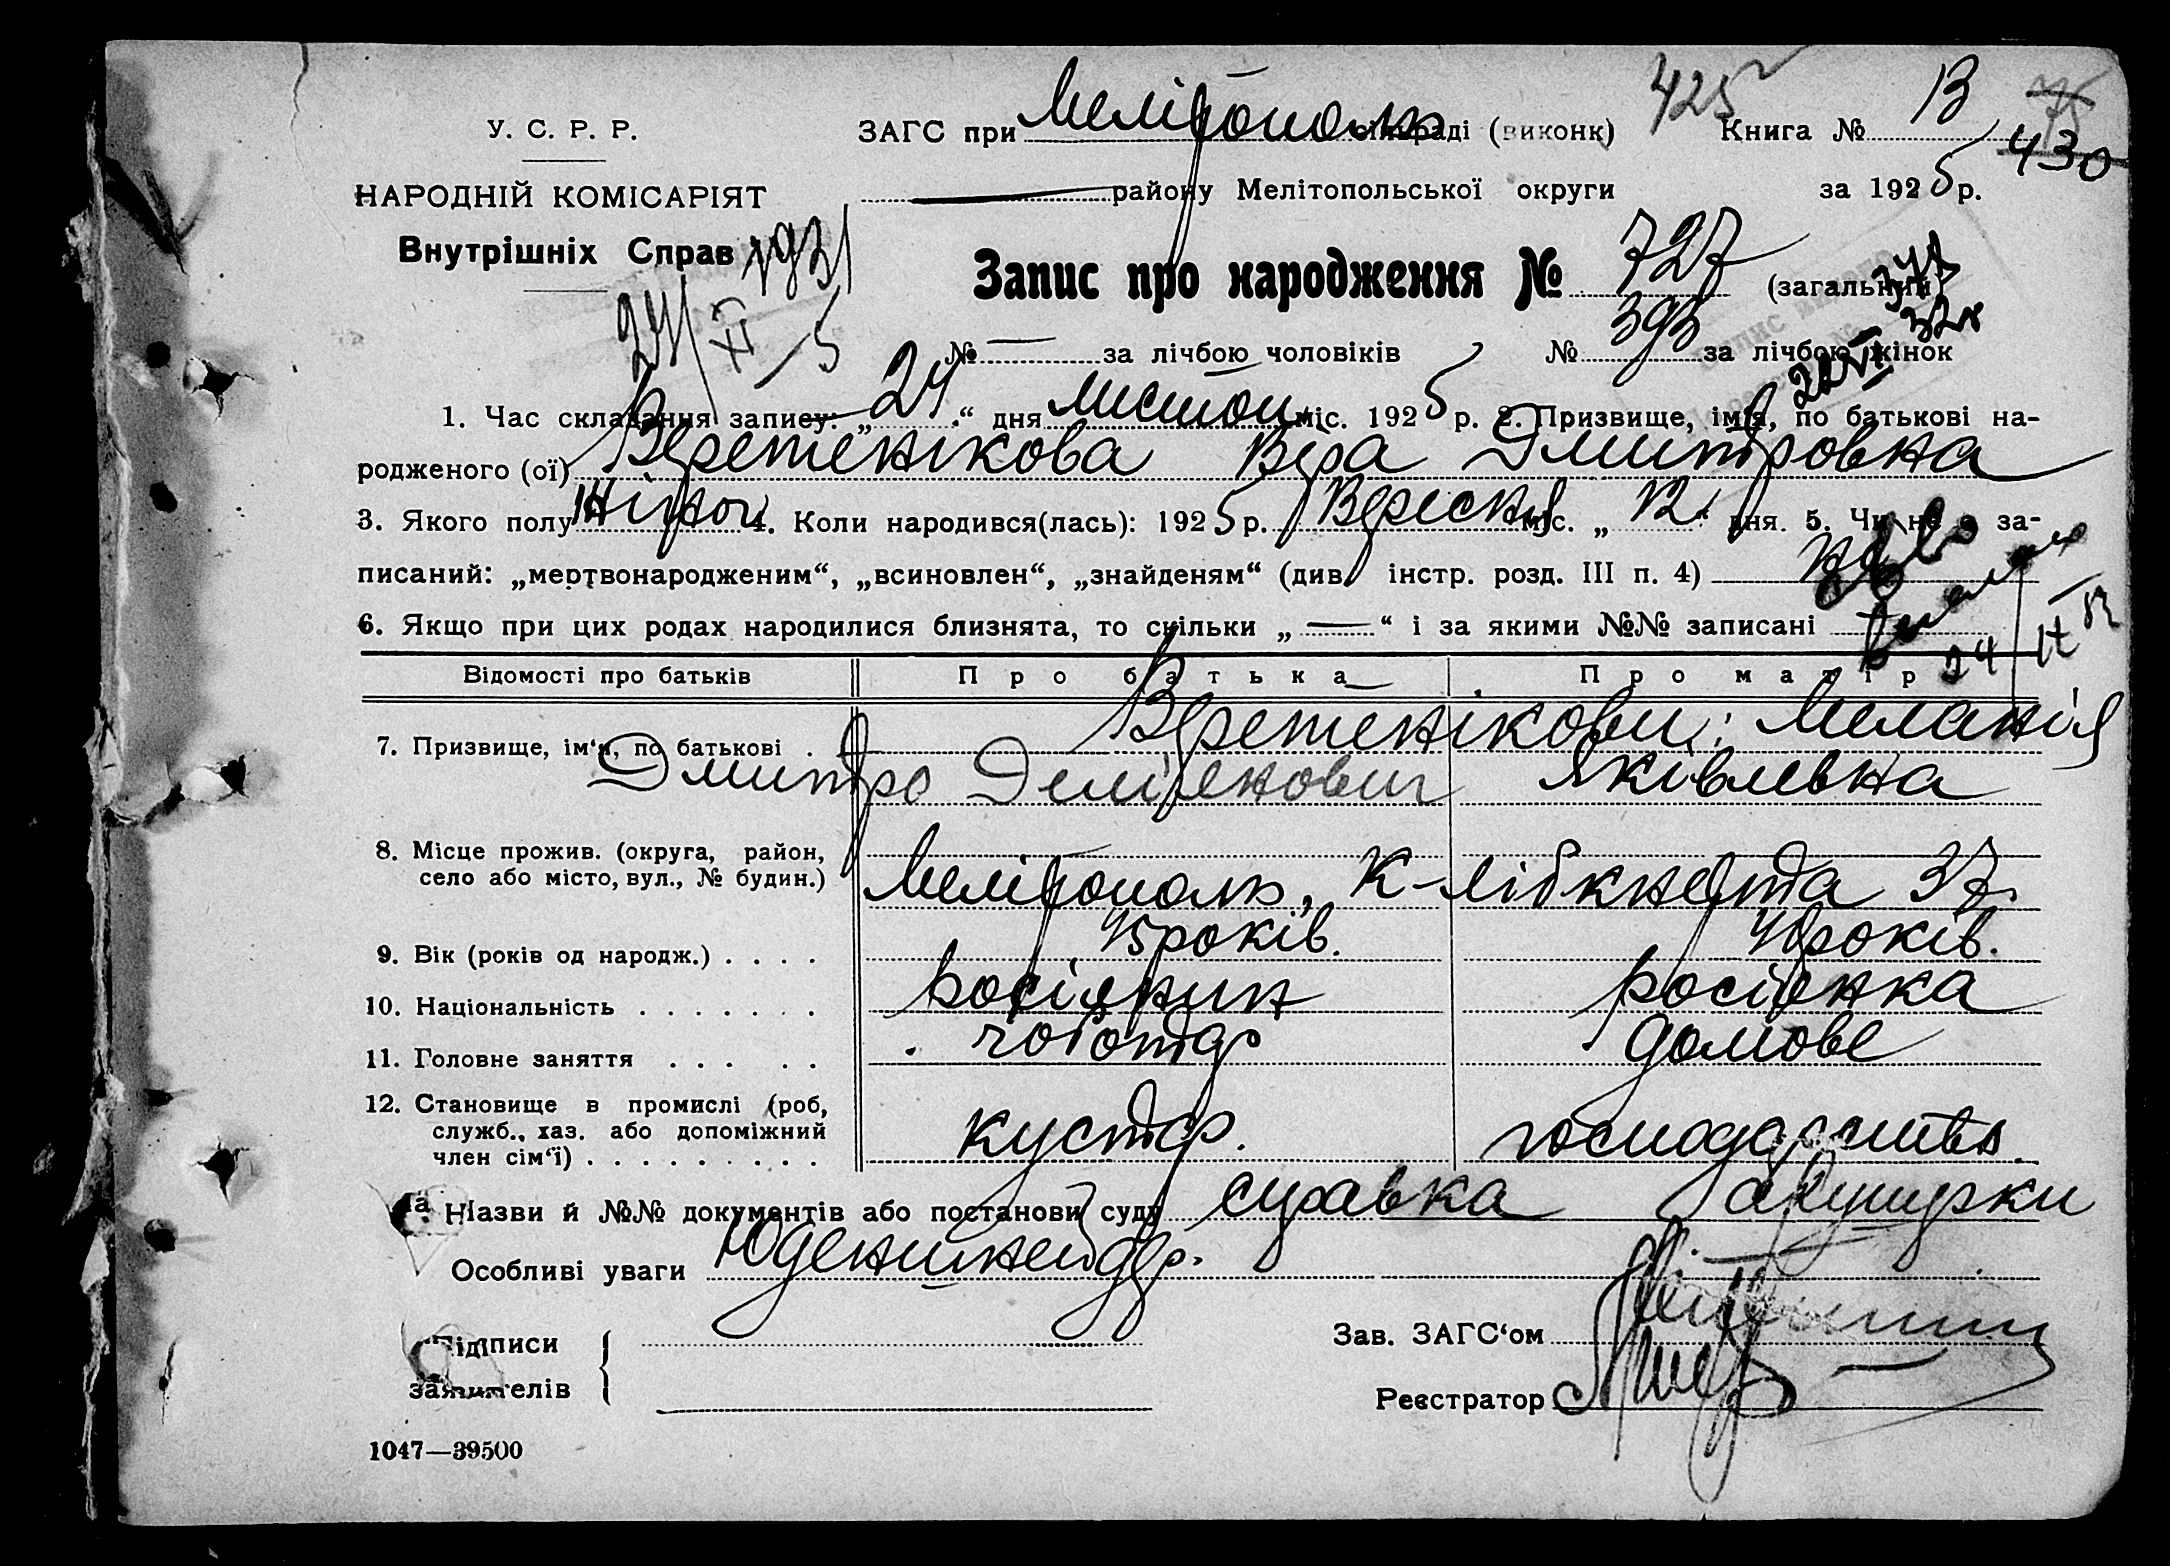 У. С. Р. Р.
НАРОДНІЙ КОМІСАРІЯТ
Внутрішніх Справ
1931
24/XI 5
ЗАГС при Мелітополь сільраді (виконк)
425
Книга № 13
75
430
района Мелітопольської округи
за 1925 р.
Запис про народження № 727 (загальний)
№ — за лічбою чоловіків № 393 за лічбою жінок
1. Час складання запису: „24“ дня листоп міс. 1925 р. 2. Призвище, імʼя, по батькові на-
родженого (ої) Веретенікова Віра Дмитровна
3. Якого полу Жіноч 4. Коли народився(лась): 1925 р. Вересня міс. „12“ дня. 5. Чи не є за-
писаний: „мертвонародженим“, „всиновлен“, „знайденям“ (див. інстр. розд. III п. 4)
6. Якщо при цих родах народилися близнята, то скільки „—“ і за якими №№ записані
24 IX
Відомості про батьків Про батька Про матір
7. Призвище, ім‘я, по батькові . Веретенікови: Меланія
Дмитро Демʼянович Яківлевна
8. Місце прожив. (округа, район,
село або місто, вул., № будин.) Мелітополь, К-Лібкнехта 37.
9. Вік (років од народж.) . . . . 45 років. 40 років.
10. Національність . . . . . . . росіянин росіянка
11. Головне заняття . . . . . чоботар домове
12. Становище в промислі (роб,
служб., хаз. або допоміжний
член сім‘ї) . . . . . . . . . кустар. господарство.
Назви й №№ документів або постанови суду справка акушерки
Особливі уваги
Підписи
заявителів
Зав. ЗАГС‘ом
Реєстратор
1047—39500